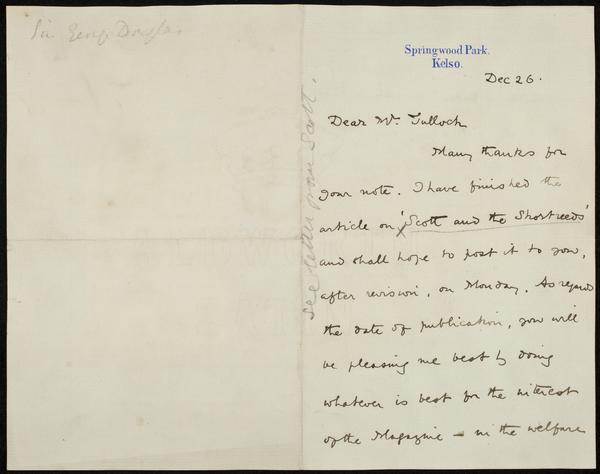 Sir George Douglas
see letter from Scott.
Springwood Park.
Kelso.
Dec 26.
Dear Mr. Tulloch
Many thanks for
your note. I have finished the
article on 'Scott and the Shortreeds'
and shall hope to post it to you,
after revision, on Monday. As regards
the date of publication, you will
be pleasing me best by doing
whatever is best for the interest
of the Magazine – in the welfare